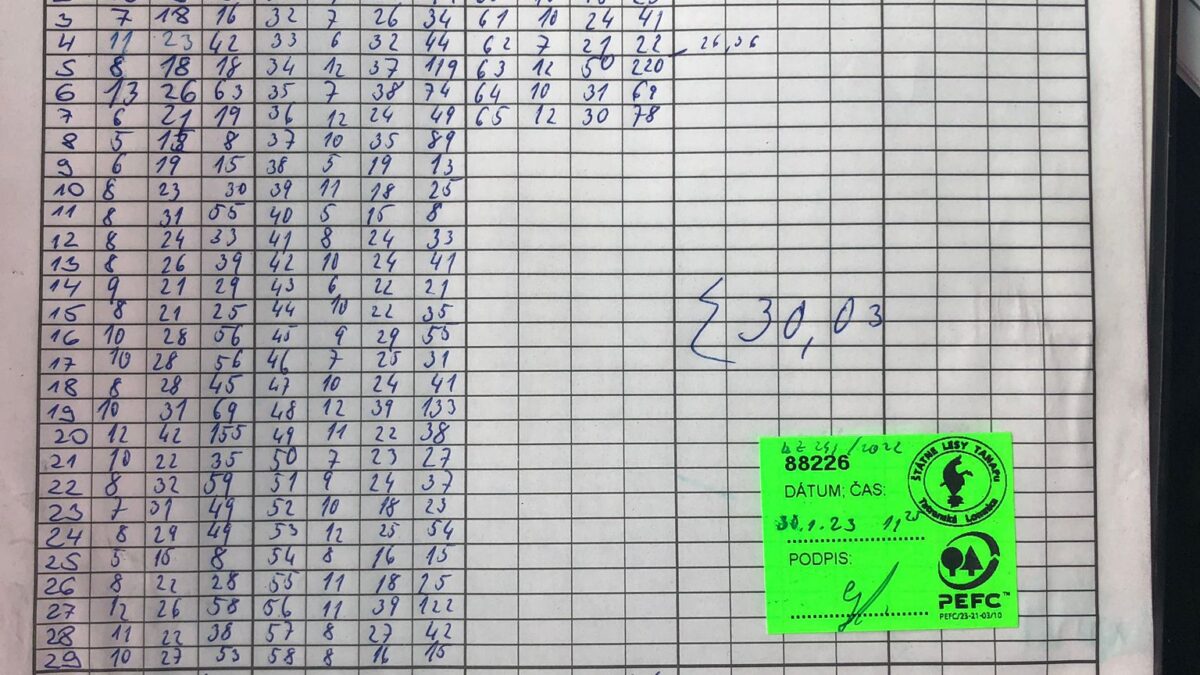 3 7 18 16 32 7 26 34 61 10 24 41
4 11 23 42 33 6 32 44 62 7 21 22 26,36
5 8 18 18 34 12 37 119 63 12 50 220
6 13 26 63 35 7 38 74 64 10 31 69
7 6 21 19 36 12 24 49 65 12 30 78
8 5 15 8 37 10 35 89
9 6 19 15 38 5 19 13
10 8 23 30 39 11 18 25
11 8 31 55 40 5 15 8
12 8 24 33 41 8 24 33
13 8 26 39 42 10 24 41
14 9 21 29 43 6 22 21
15 8 21 25 44 10 22 35
16 10 28 56 45 9 29 55
17 10 28 56 46 7 25 31
18 8 28 45 47 10 24 41
19 10 31 69 48 12 39 133
20 12 42 155 49 11 22 38
21 10 22 35 50 7 23 27
22 8 32 59 51 9 24 37
23 7 31 49 52 10 18 23
24 8 29 49 53 12 25 54
25 5 15 8 54 8 16 15
26 8 22 28 55 11 18 25
27 12 26 58 56 11 39 122
28 11 22 38 57 8 27 42
29 10 27 53 58 8 16 15
30,03
88226
DÁTUM; ČAS:
30.1.23 11 25
PODPIS:
ŠTÁTNE LESY TANAPu
Tatranská Lomnica
PEFC™
PEFC/23-21-03/10